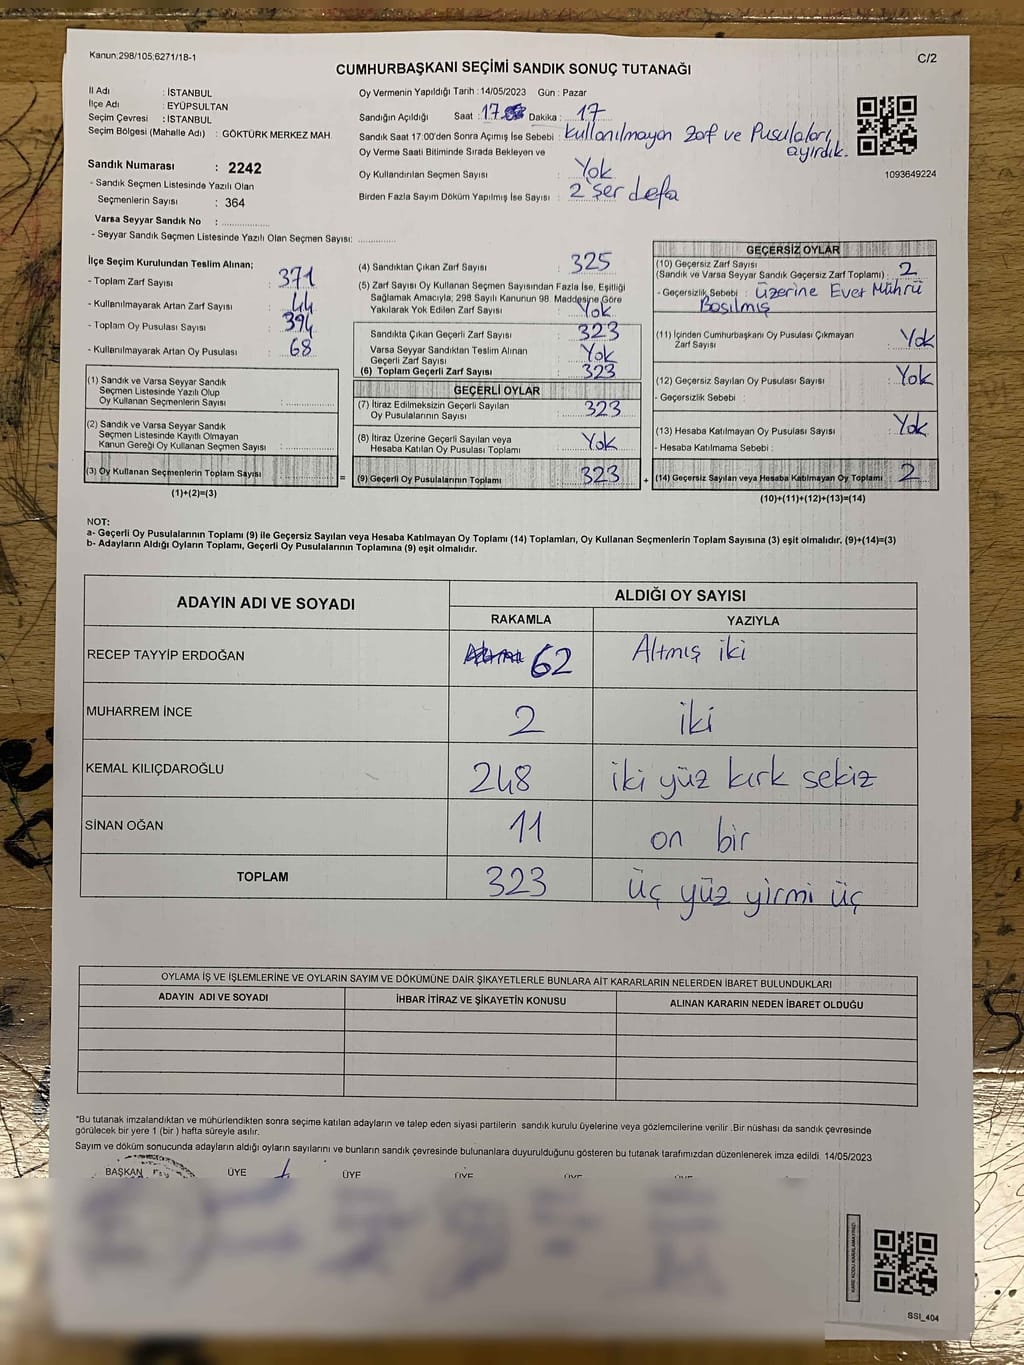 Kanun;298/105;6271/18-1
C/2
CUMHURBAŞKANI SEÇİMİ SANDIK SONUÇ TUTANAĞI
İl Adı : İSTANBUL
İlçe Adı : EYÜPSULTAN
Seçim Çevresi : İSTANBUL
Seçim Bölgesi (Mahalle Adı) : GÖKTÜRK MERKEZ MAH.
Sandık Numarası : 2242
- Sandık Seçmen Listesinde Yazılı Olan
Seçmenlerin Sayısı : 364
Varsa Seyyar Sandık No :
- Seyyar Sandık Seçmen Listesinde Yazılı Olan Seçmen Sayısı:
Oy Vermenin Yapıldığı Tarih : 14/05/2023 Gün : Pazar
Sandığın Açıldığı Saat : 17 Dakika : 17
Sandık Saat 17:00'den Sonra Açımış İse Sebebi : Kullanılmayan Zarf ve Pusulaları
ayırdık.
Oy Verme Saati Bitiminde Sırada Bekleyen ve
Oy Kullandırılan Seçmen Sayısı : Yok
Birden Fazla Sayım Döküm Yapılmış İse Sayısı : 2'şer defa
1093649224
İlçe Seçim Kurulundan Teslim Alınan;
- Toplam Zarf Sayısı : 371
- Kullanılmayarak Artan Zarf Sayısı : 44
- Toplam Oy Pusulası Sayısı : 394
- Kullanılmayarak Artan Oy Pusulası : 68
(1) Sandık ve Varsa Seyyar Sandık
Seçmen Listesinde Yazılı Olup
Oy Kullanan Seçmenlerin Sayısı :
(2) Sandık ve Varsa Seyyar Sandık
Seçmen Listesinde Kayıtlı Olmayan
Kanun Gereği Oy Kullanan Seçmen Sayısı :
(3) Oy Kullanan Seçmenlerin Toplam Sayısı
(1)+(2)=(3)
=
(4) Sandıktan Çıkan Zarf Sayısı : 325
(5) Zarf Sayısı Oy Kullanan Seçmen Sayısından Fazla İse, Eşitliği
Sağlamak Amacıyla; 298 Sayılı Kanunun 98. Maddesine Göre
Yakılarak Yok Edilen Zarf Sayısı : Yok
Sandıkta Çıkan Geçerli Zarf Sayısı : 323
Varsa Seyyar Sandıktan Teslim Alınan
Geçerli Zarf Sayısı : Yok
(6) Toplam Geçerli Zarf Sayısı : 323
GEÇERLİ OYLAR
(7) İtiraz Edilmeksizin Geçerli Sayılan
Oy Pusulalarının Sayısı : 323
(8) İtiraz Üzerine Geçerli Sayılan veya
Hesaba Katılan Oy Pusulası Toplamı : Yok
(9) Geçerli Oy Pusulalarının Toplamı 323
+
GEÇERSİZ OYLAR
(10) Geçersiz Zarf Sayısı
(Sandık ve Varsa Seyyar Sandık Geçersiz Zarf Toplamı) : 2
- Geçersizlik Sebebi : Üzerine Evet Mührü
Basılmış
(11) İçinden Cumhurbaşkanı Oy Pusulası Çıkmayan
Zarf Sayısı : Yok
(12) Geçersiz Sayılan Oy Pusulası Sayısı : Yok
- Geçersizlik Sebebi :
(13) Hesaba Katılmayan Oy Pusulası Sayısı : Yok
- Hesaba Katılmama Sebebi :
(14) Geçersiz Sayılan veya Hesaba Katılmayan Oy Toplamı 2
(10)+(11)+(12)+(13)=(14)
NOT:
a- Geçerli Oy Pusulalarının Toplamı (9) ile Geçersiz Sayılan veya Hesaba Katılmayan Oy Toplamı (14) Toplamları, Oy Kullanan Seçmenlerin Toplam Sayısına (3) eşit olmalıdır. (9)+(14)=(3)
b- Adayların Aldığı Oyların Toplamı, Geçerli Oy Pusulalarının Toplamına (9) eşit olmalıdır.
ADAYIN ADI VE SOYADI
ALDIĞI OY SAYISI
RAKAMLA YAZIYLA
RECEP TAYYİP ERDOĞAN 62 Altmış iki
MUHARREM İNCE 2 iki
KEMAL KILIÇDAROĞLU 248 iki yüz kırk sekiz
SİNAN OĞAN 11 on bir
TOPLAM 323 üç yüz yirmi üç
OYLAMA İŞ VE İŞLEMLERİNE VE OYLARIN SAYIM VE DÖKÜMÜNE DAİR ŞİKAYETLERLE BUNLARA AİT KARARLARIN NELERDEN İBARET BULUNDUKLARI
ADAYIN ADI VE SOYADI İHBAR İTİRAZ VE ŞİKAYETİN KONUSU ALINAN KARARIN NEDEN İBARET OLDUĞU
*Bu tutanak imzalandıktan ve mühürlendikten sonra seçime katılan adayların ve talep eden siyasi partilerin sandık kurulu üyelerine veya gözlemcilerine verilir .Bir nüshası da sandık çevresinde
görülecek bir yere 1 (bir ) hafta süreyle asılır.
Sayım ve döküm sonucunda adayların aldığı oyların sayılarını ve bunların sandık çevresinde bulunanlara duyurulduğunu gösteren bu tutanak tarafımızdan düzenlenerek imza edildi. 14/05/2023
BAŞKAN ÜYE ÜYE ÜYE ÜYE ÜYE
KARE KODU KARALAMAYINIZ!
SSI_404